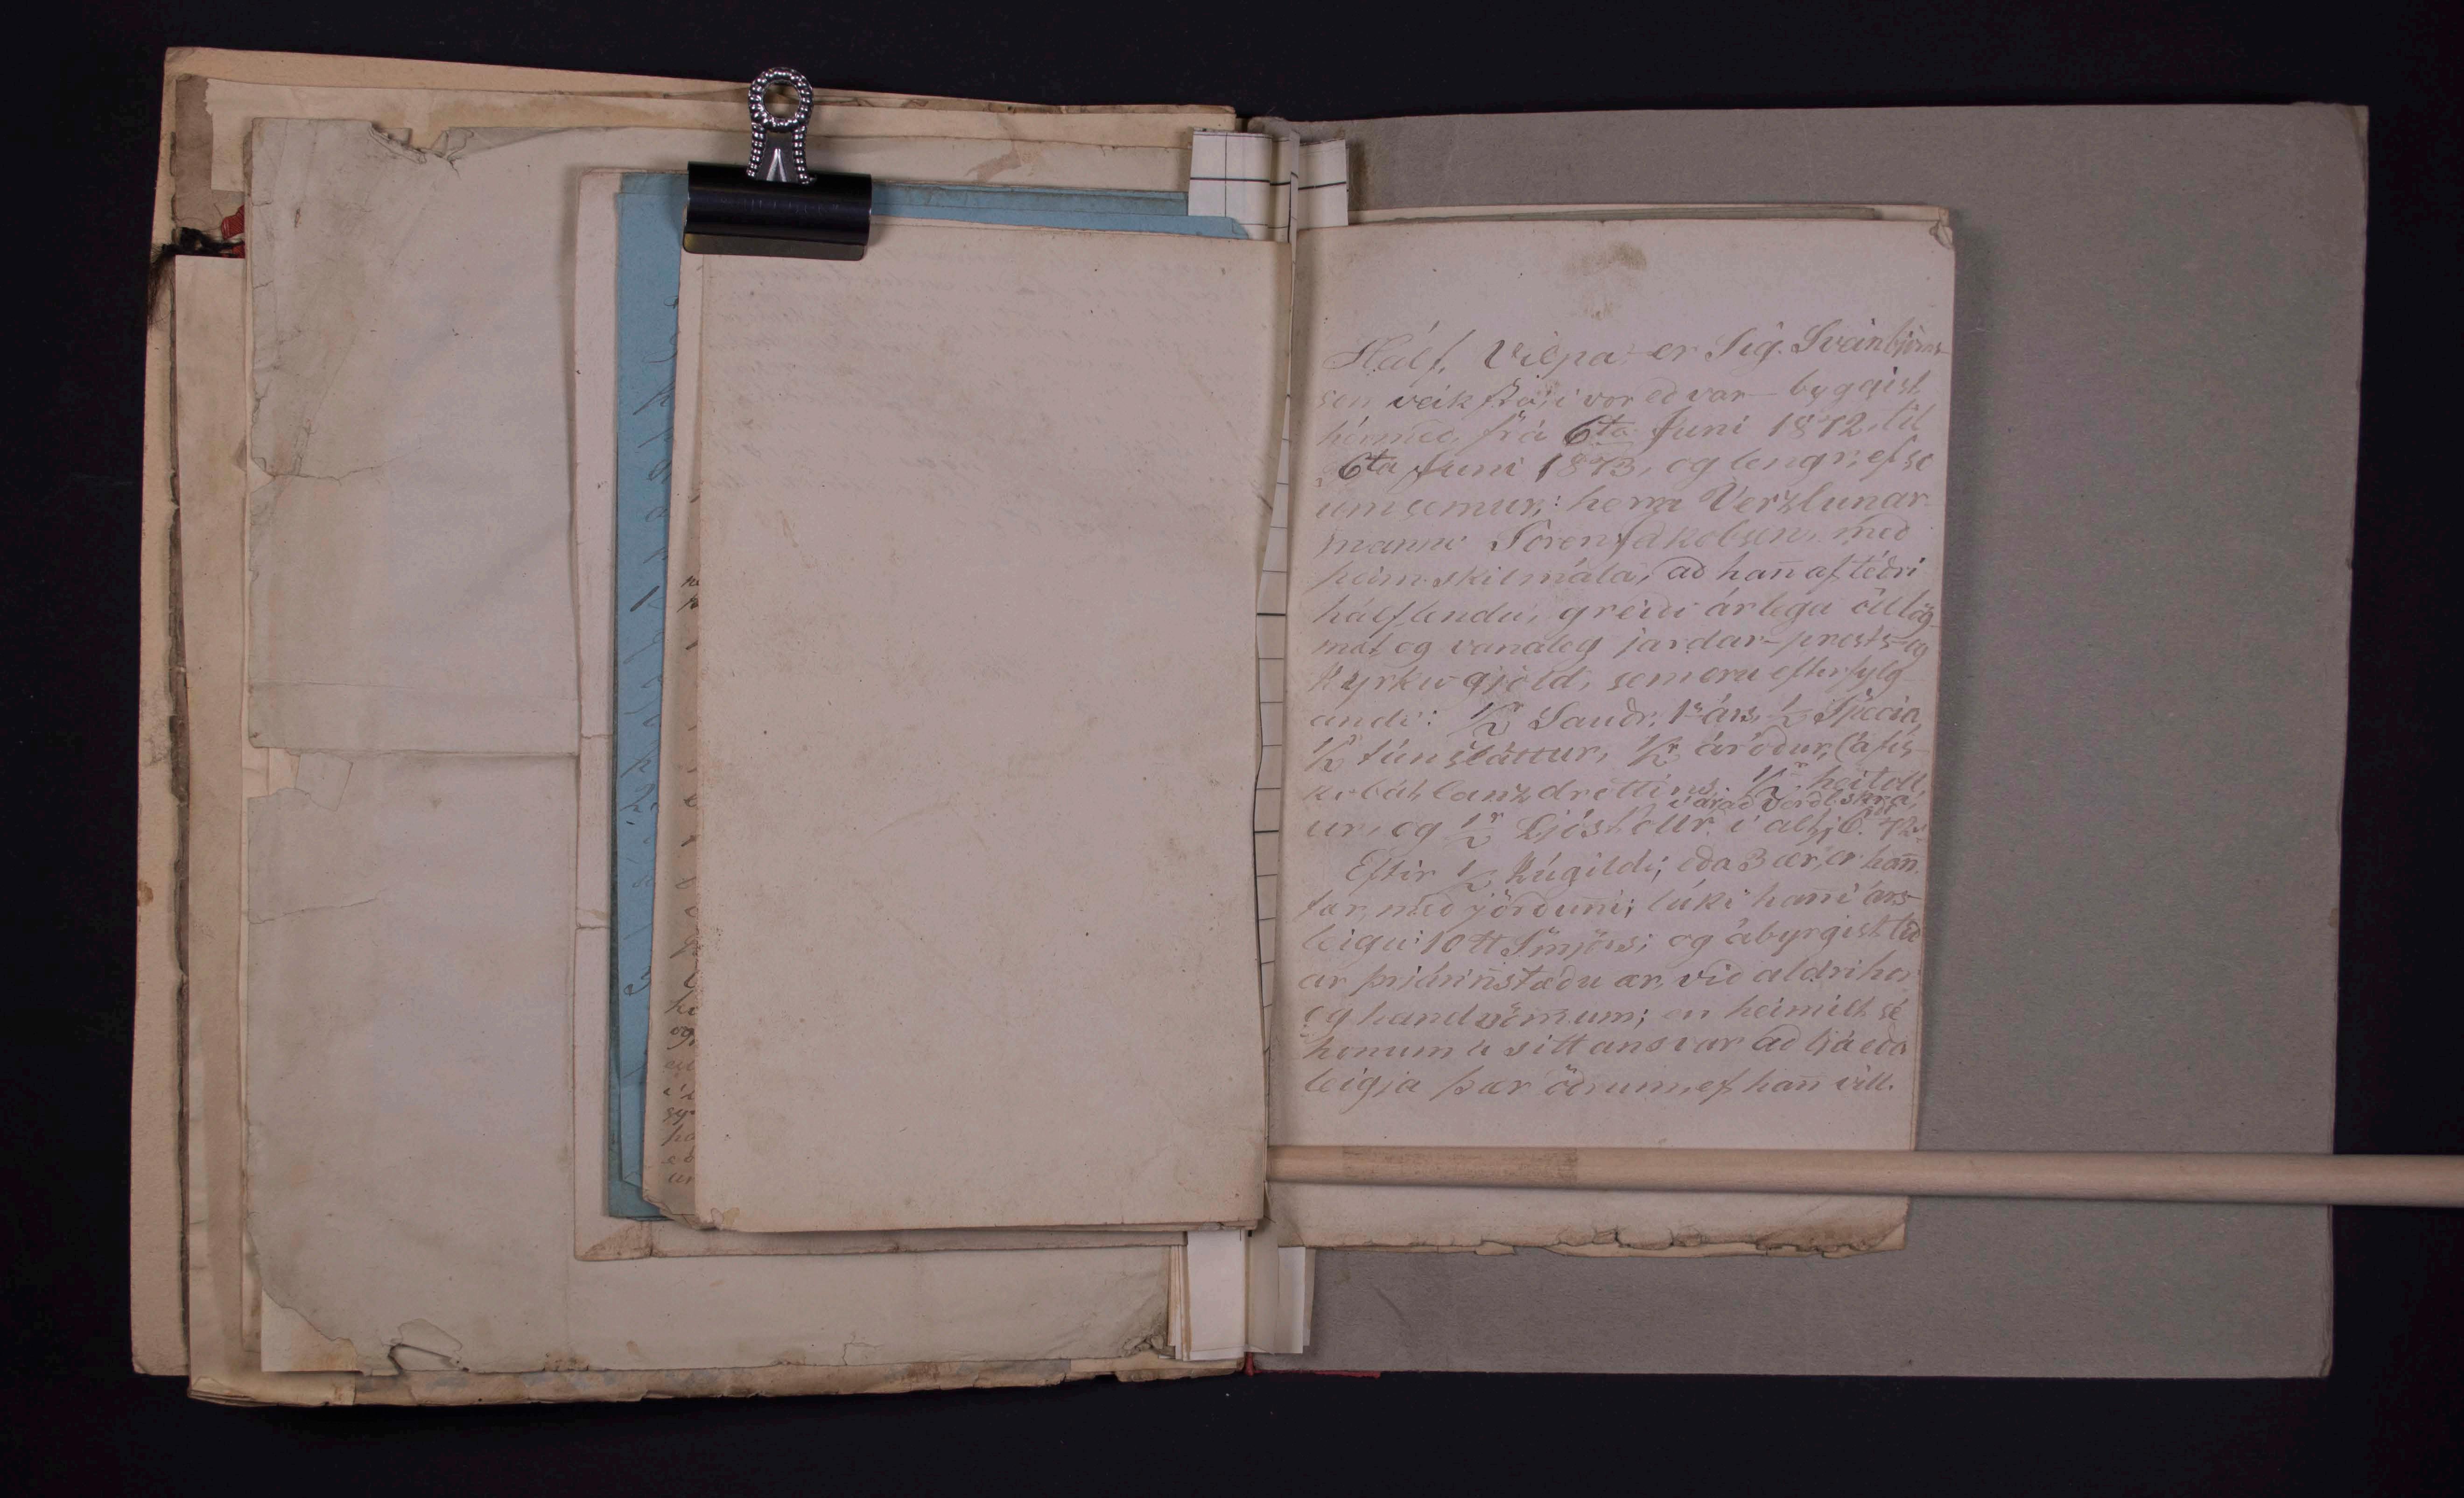 Hálf, Vilpa er Sig. Sveinbjörns-
son veik frá í vor eð var – byggist
hérmeð, frá 6ta Juni 1872, til
6ta Juni 1873, og lengr, ef se
um semur,: herra Verzlunar
manni Sören Jakobsen, með
þeim skilmála, að hañ af téðri
hálflendu, greiði árlega öll lög-
mæt og vanaleg jarðar- prests- og
kyrkiu-gjöld, sem eru efterfylg
andi: 1/2r Sauðr, 1s árs, 1/2 Specia,
1/2r túnsláttur, 1/2r áróður, (á fis-
kibát lanzdrottins, 1/2r heitoll,
í ár að verðl.skrá,
ur, og 1/2r Ljóstollr
Eftir 1/2 Kúgildi; eða 3 ær, er hañ
fær, með jörðuñi; lúki hañ í árs-
leigu: 10 ℔ Smjörs; og ábyrgist téð
ar þrjár iñstæðu ær, við aldri hor
og handvömmum; en heimilt sé
honum á sitt ansvar að ljá eða
leigja þær öðrum, ef hañ vill.